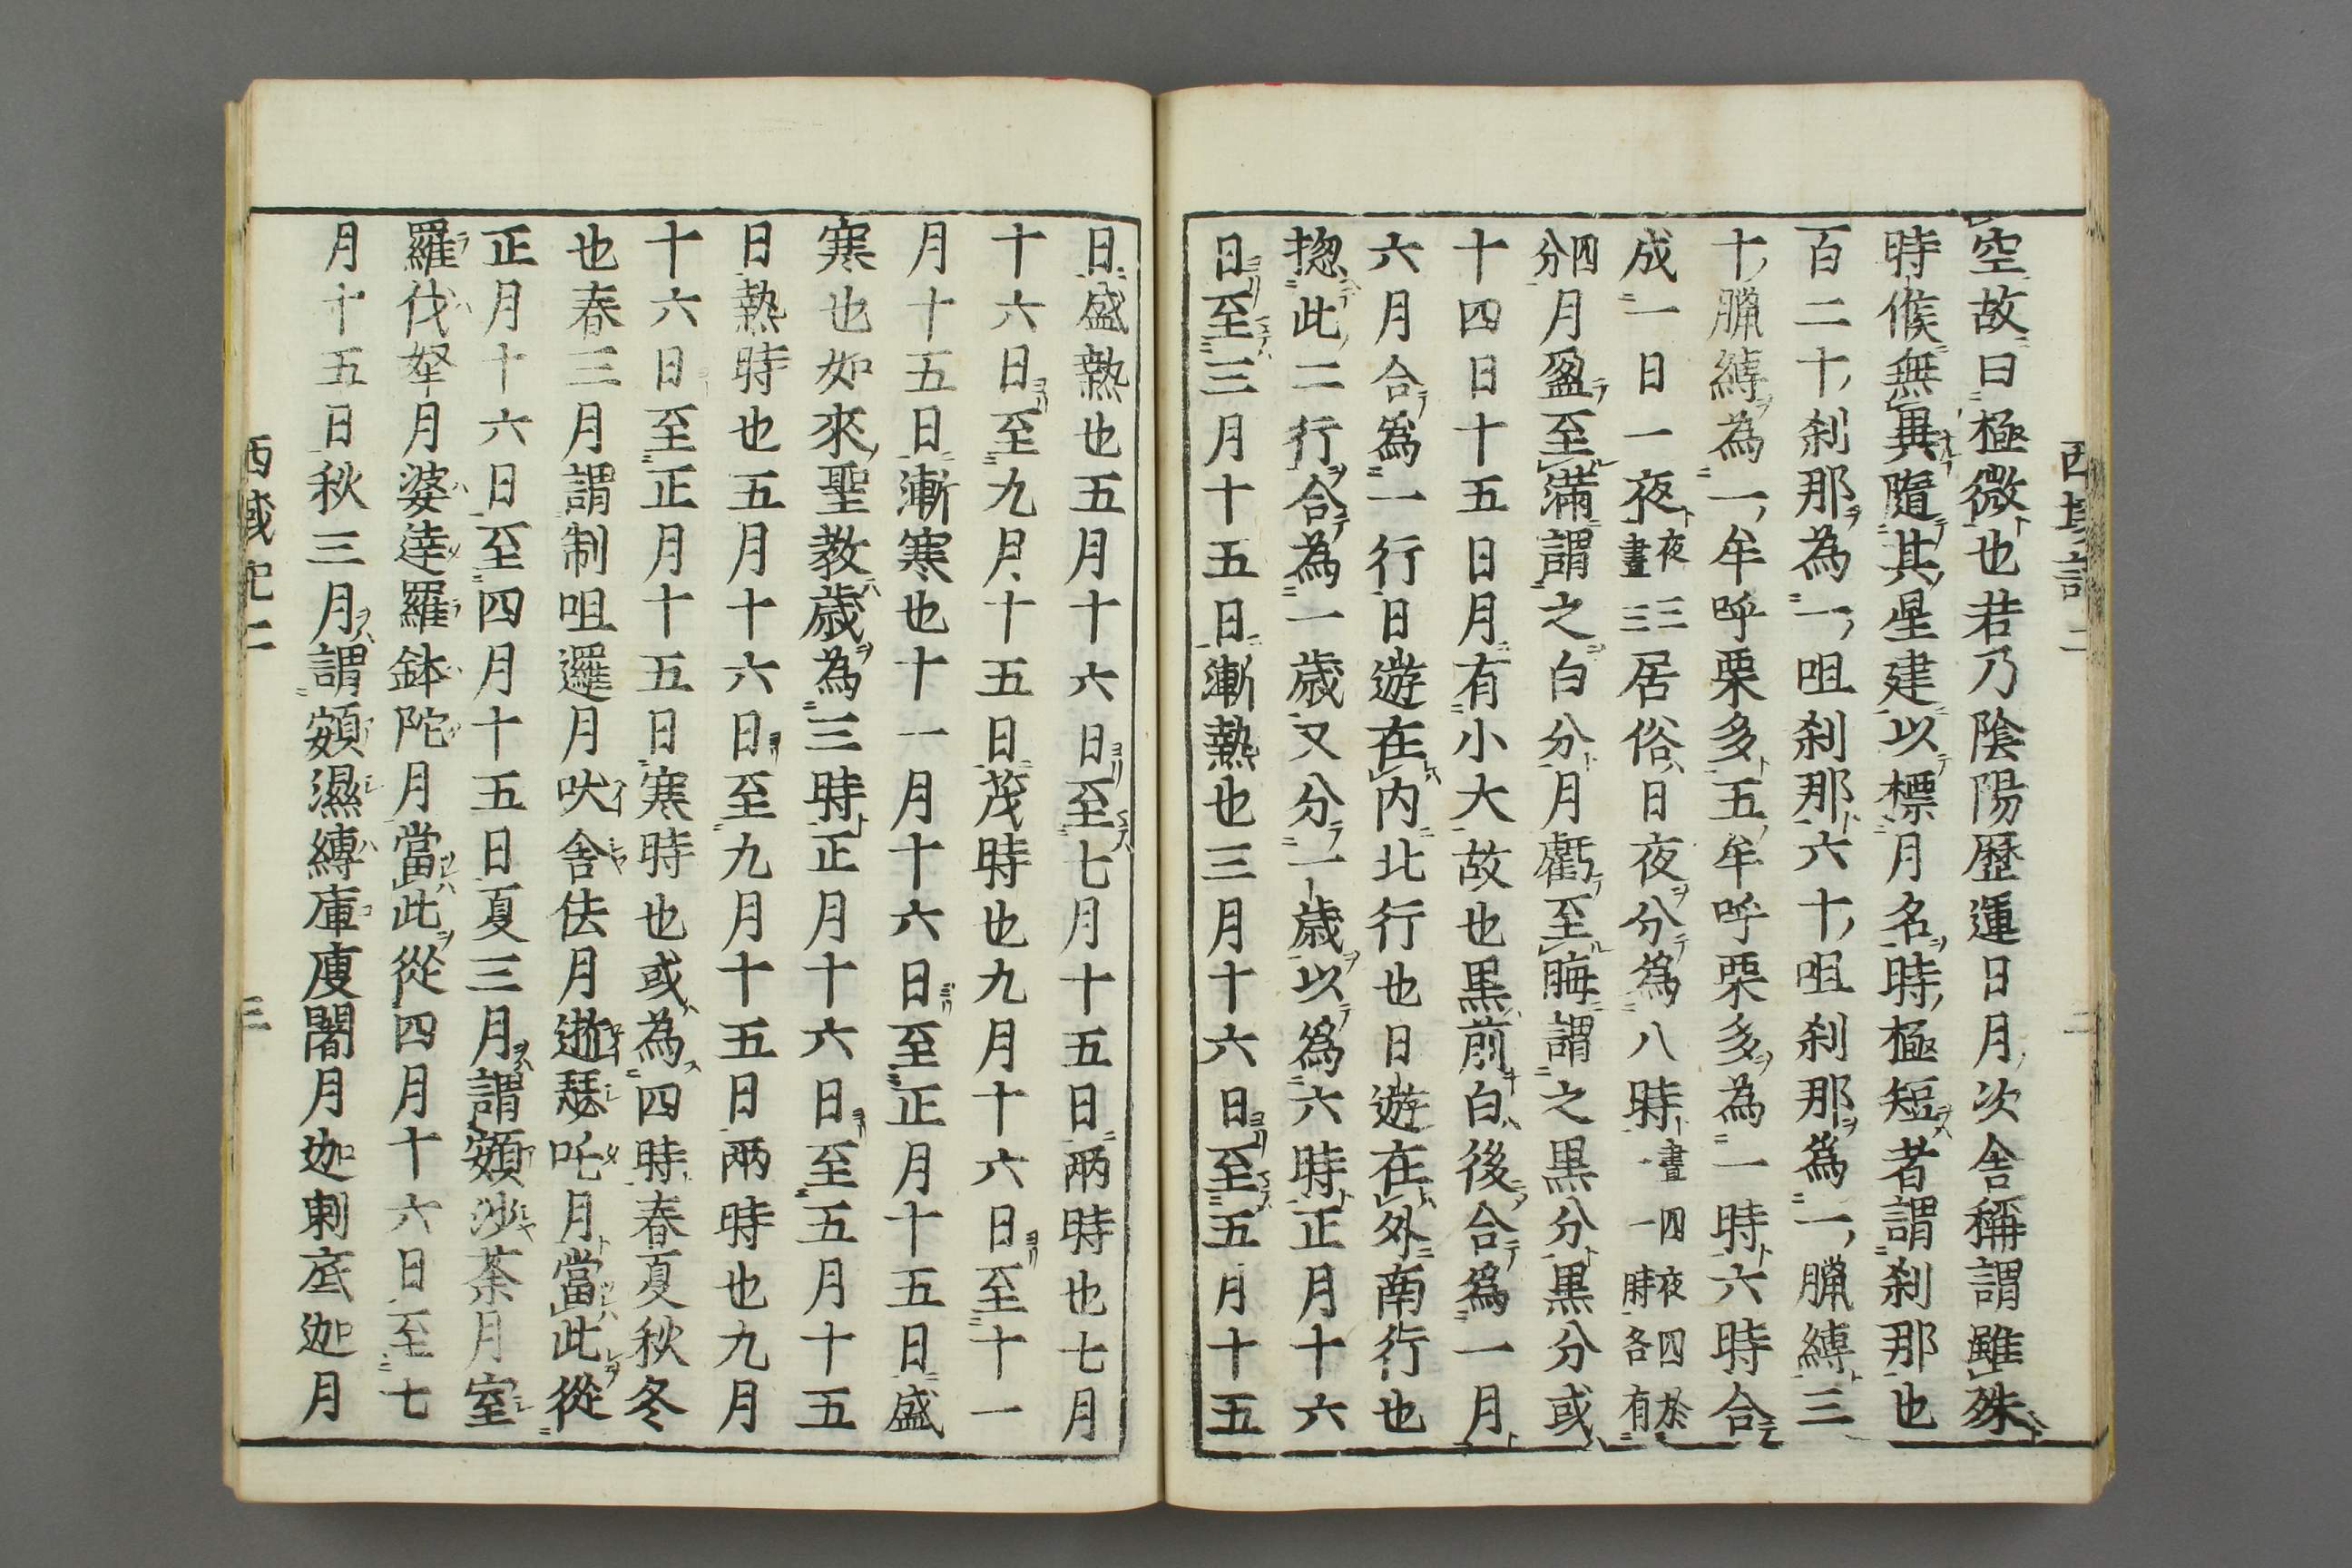 西域記二 二
空故曰極微也若乃陰陽歷運日月次舍稱謂雖殊
時候無異隨其星建以標月名時極短者謂刹那也
百二十刹那為一呾刹那六十呾刹那爲一臘縛三
十臘縛為一牟呼栗多五牟呼栗多為一時六時合
成一日一夜夜三晝三居俗日夜分爲八時晝四夜四於一一時各有
四分月盈至滿謂之白分月虧至晦謂之黒分黒分或
十四日十五日月有小大故也黒前白後合爲一月
六月合爲一行日遊在内北行也日遊在外南行也
揔此二行合為一歳又分一歳以爲六時正月十六
日至三月十五日漸熱也三月十六日至五月十五
日盛熱也五月十六日至七月十五日雨時也七月
十六日至九月十五日茂時也九月十六日至十一
月十五日漸寒也十一月十六日至正月十五日盛
寒也如來聖教歳為三時正月十六日至五月十五
日熱時也五月十六日至九月十五日雨時也九月
十六日至正月十五日寒時也或為四時春夏秋冬
也春三月謂制呾邏月吠舍佉月逝瑟吒月當此從
正月十六日至四月十五日夏三月謂頞沙荼月室
羅伐拏月婆達羅鉢陀月當此從四月十六日至七
月十五日秋三月謂頞濕縛庫廋闍月迦剌底迦月
西域記二 三